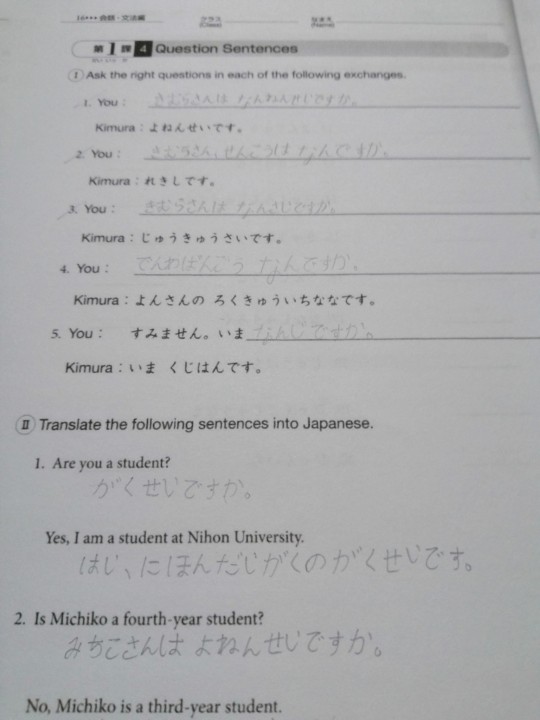 16••• 会話・文法編 クラス (Class) なまえ (Name)
第1課 4 Question Sentences
Ⅰ Ask the right questions in each of the following exchanges.
1. You : きむらさんは なんねんせいですか。
Kimura : よねんせいです。
2. You : きむらさん、せんこうは なんですか。
Kimura : れきしです。
3. You : きむらさんは なんさいですか。
Kimura : じゅうきゅうさいです。
4. You : でんわばんごう なんですか。
Kimura : よんさんの ろくきゅういちななです。
5. You : すみません。いま なんじですか。
Kimura : いま くじはんです。
Ⅱ Translate the following sentences into Japanese.
1. Are you a student?
がくせいですか。
Yes, I am a student at Nihon University.
はい、にほんだいがくのがくせいです。
2. Is Michiko a fourth-year student?
みちこさんは よねんせいですか。
No, Michiko is a third-year student.